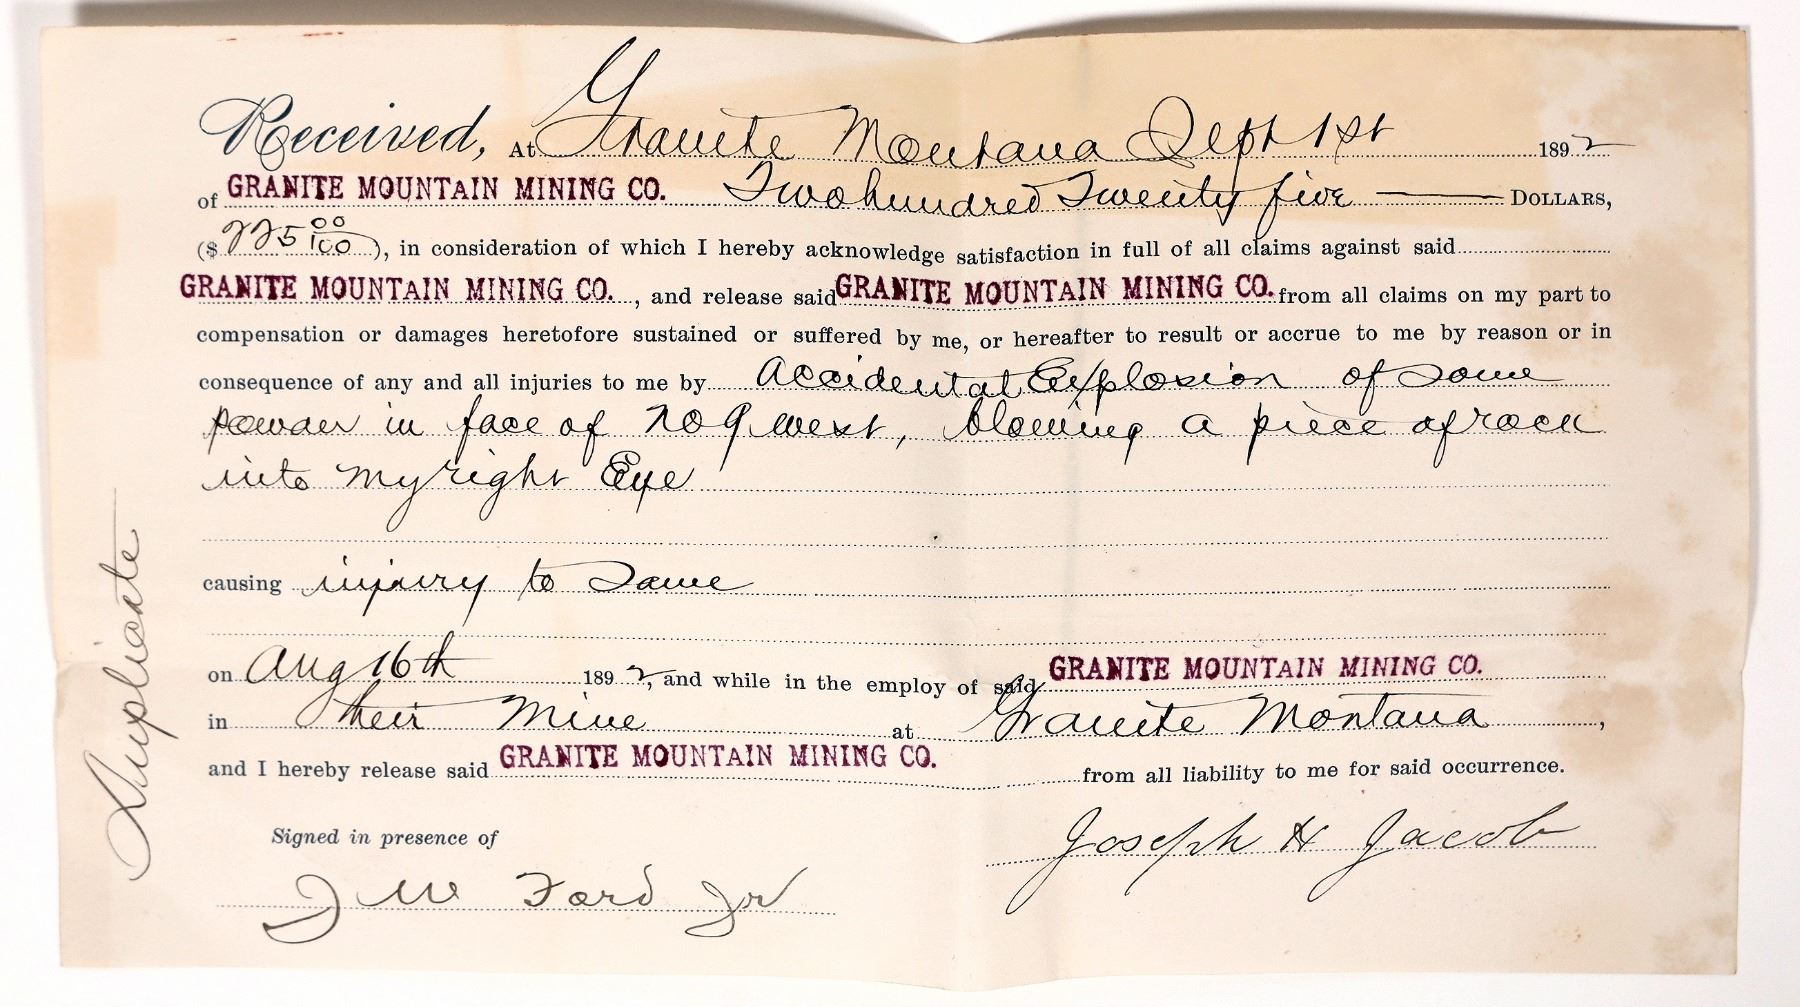 Received, At Granite Montana Sept 1st 1892
of GRANITE MOUNTAIN MINING CO. Two hundred Twenty five — DOLLARS,
($ 225 00/100), in consideration of which I hereby acknowledge satisfaction in full of all claims against said
GRANITE MOUNTAIN MINING CO. , and release said GRANITE MOUNTAIN MINING CO. from all claims on my part to
compensation or damages heretofore sustained or suffered by me, or hereafter to result or accrue to me by reason or in
consequence of any and all injuries to me by Accidental Explosion of some
powder in face of No 9 west, blowing a piece of rock
into my right Eye
causing injury to Same
on Aug 16th 1892, and while in the employ of said GRANITE MOUNTAIN MINING CO.
in their Mine at Granite Montana ,
and I hereby release said GRANITE MOUNTAIN MINING CO. from all liability to me for said occurrence.
Signed in presence of
Joseph H Jacob
J W Ford Jr
Duplicate